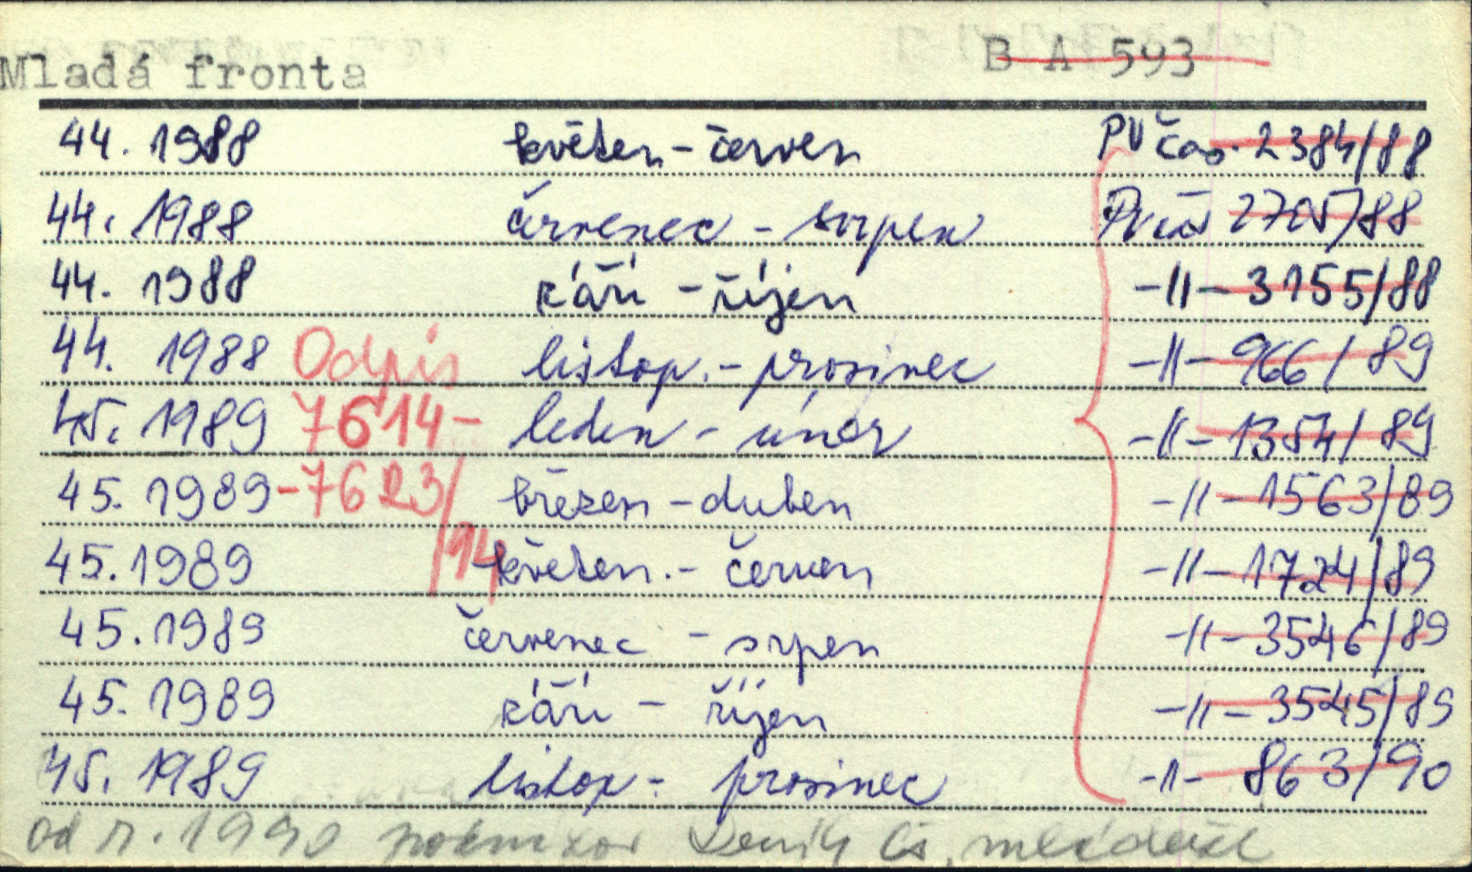 Mladá fronta B A 593
44. 1988 květen - červen PV čas. 2384/88
44. 1988 červenec - srpen PV čas 2705/88
44. 1988 září - říjen -||- 3155/88
44. 1988 Odpis listop. - prosinec -||- 966/89
45. 1989 7614- leden - únor -||- 1354/89
45. 1989 -7623/ březen - duben -||- 1563/89
45. 1989 /14 květen. - červen -||- 1724/89
45. 1989 červenec - srpen -||- 3546/89
45. 1989 září - říjen -||- 3545/89
45. 1989 listop - prosinec -||- 863/90
od r. 1990 Deník čs. mládeže